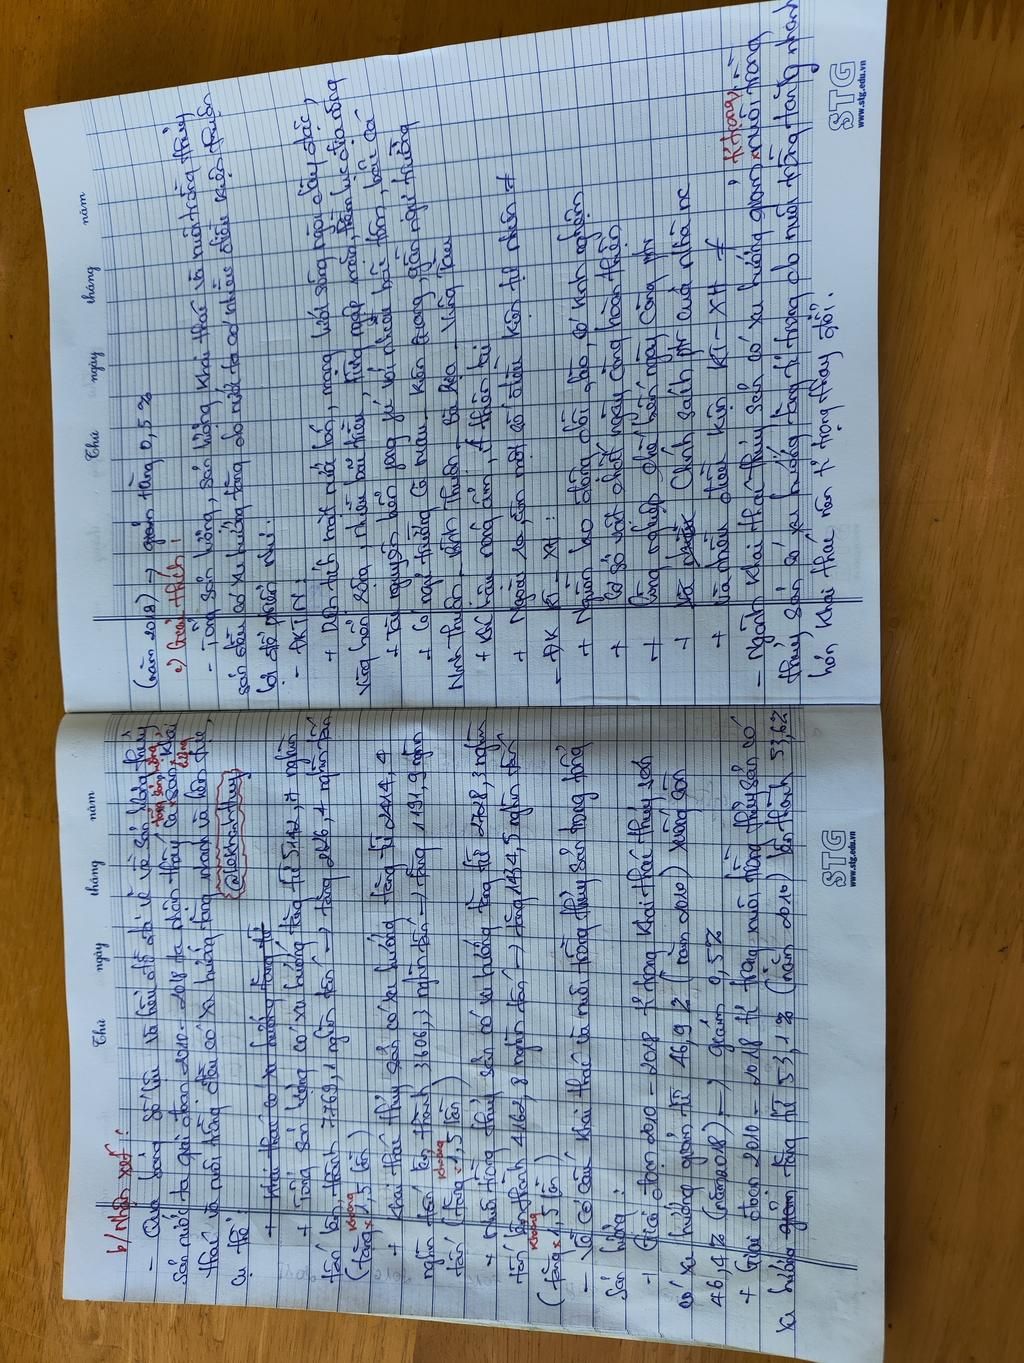 Thứ ngày tháng năm
b/ Nhận xét:
- Qua bảng số liệu và biểu đồ đã vẽ về sản lượng thủy
sản nước ta giai đoạn 2010 - 2018 ta nhận thấy cả tổng sản lượng, sản lượng khai
thác và nuôi trồng đều có xu hướng tăng nhanh và liên tục,
cụ thể:
@lokhanhthuy
+ Khai thác có xu hướng tăng từ
+ Tổng sản lượng có xu hướng tăng từ 5142,7 nghìn
tấn lên thành 7769,1 nghìn tấn → tăng 2626,4 nghìn tấn
(tăng khoảng 1,5 lần)
+ Khai thác thủy sản có xu hướng tăng từ 2414,4
nghìn tấn lên thành 3606,3 nghìn tấn → tăng 1191,9 nghìn
tấn (tăng khoảng 1,5 lần)
+ Nuôi trồng thủy sản có xu hướng tăng từ 2728,3 nghìn
tấn lên thành 4162,8 nghìn tấn → tăng 1434,5 nghìn tấn
(tăng khoảng 1,5 lần)
- Về cơ cấu khai thác và nuôi trồng thủy sản trong tổng
sản lượng:
+ Giai đoạn 2010 - 2018 tỉ trọng khai thác thủy sản
có xu hướng giảm từ 46,9 % (năm 2010) xuống còn
46,4% (năm 2018) → giảm 0,5%
+ Giai đoạn 2010 - 2018 tỉ trọng nuôi trồng thủy sản có
xu hướng giảm tăng từ 53,1 % (năm 2010) lên thành 53,6%
STG
www.stg.edu.vn
Thứ ngày tháng năm
(năm 2018) → giảm tăng 0,5%
c) Giải thích:
- Tổng sản lượng, sản lượng khai thác và nuôi trồng thủy
sản đều có xu hướng tăng do nước ta có nhiều điều kiện thuận
lợi để phát triển như:
- ĐKTN:
+ Diện tích mặt nước lớn, mạng lưới sông ngòi dày đặc,
vùng biển rộng, nhiều bãi triều, rừng ngập mặn, thềm lục địa rộng
+ Tài nguyên biển phong phú với nhiều bãi tôm, bãi cá
+ Có ngư trường Cà Mau - Kiên Giang, gần ngư trường
Ninh Thuận - Bình Thuận - Bà Rịa - Vũng Tàu
+ Khí hậu nóng ẩm, ít thiên tai
+ Ngoài ra còn một số điều kiện tự nhiên ≠
- ĐK KT - XH:
+ Nguồn lao động dồi dào, có kinh nghiệm
+ Cơ sở vật chất ngày càng hoàn thiện
+ Công nghiệp chế biến ngày càng ptr
+ Chính sách ptr của nhà nc
+ Và nhiều điều kiện KT - XH ≠
- Ngành khai thác thủy sản có xu hướng giảm tỉ trọng, nuôi trồng
thủy sản có xu hướng tăng tỉ trọng do nuôi trồng tăng nhanh
hơn khai thác nên tỉ trọng thay đổi.
STG
www.stg.edu.vn